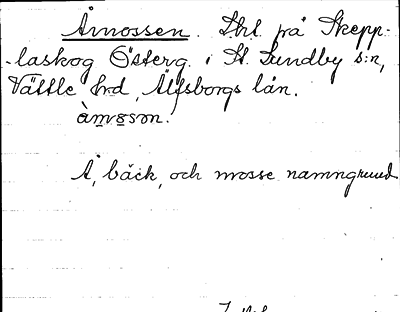 Åmossen. Lht på Skepp-
laskog Österg. i St. Lundby s:n,
Vättle hd, Älfsborgs län.
åmosən.
Å, bäck, och mosse namngrund